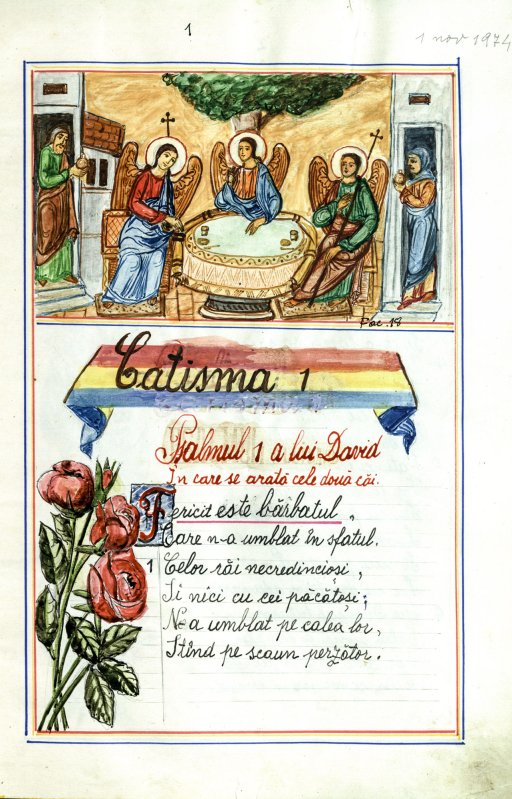 1
1 nov 1974
Fac. 18
Catisma 1
Psalmul 1 a lui David
În care se arată cele două căi.
Fericit este bărbatul,
Care n-a umblat în sfatul.
1
Celor răi necredincioși,
Și nici cu cei păcătoși;
N-a umblat pe calea lor,
Stînd pe scaun perzător.